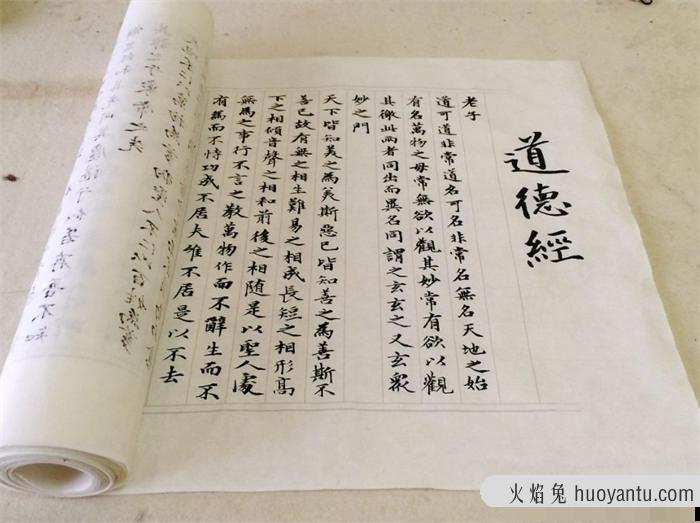 道德經
老子
道可道非常道名可名非常名無名天地之始
有名萬物之母常無欲以觀其妙常有欲以觀
其徼此兩者同出而異名同謂之玄玄之又玄眾
妙之門
天下皆知美之為美斯惡已皆知善之為善斯不
善已故有無之相生難易之相成長短之相形高
下之相傾音聲之相和前後之相随是以聖人處
無為之事行不言之教萬物作而不辭生而不
有為而不恃功成不居夫唯不居是以不去
火焰兔 huoyantu.com